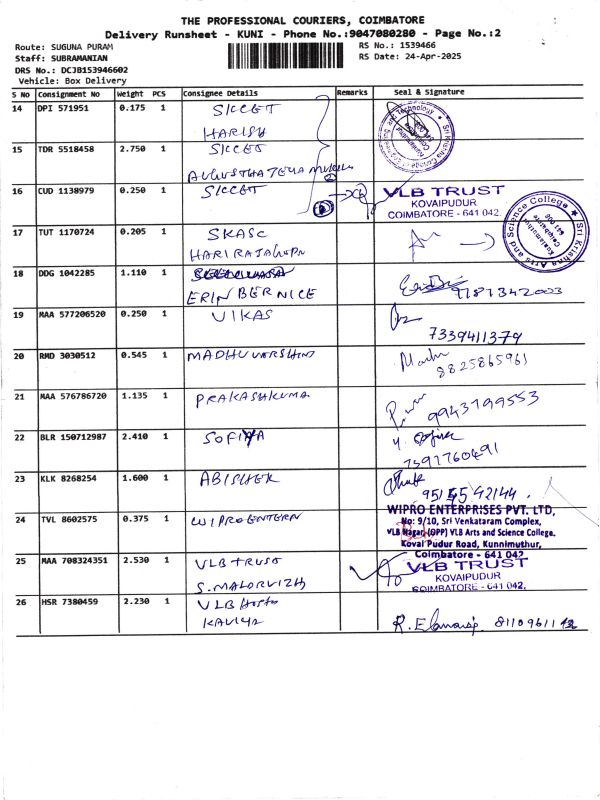 THE PROFESSIONAL COURIERS, COIMBATORE
Delivery Runsheet - KUNI - Phone No.:9047080280 - Page No.:2
Route: SUGUNA PURAM
Staff: SUBRAMANIAN
DRS No.: DCJB153946602
Vehicle: Box Delivery
RS No.: 1539466
RS Date: 24-Apr-2025
S No Consignment No Weight PCS Consignee Details Remarks Seal & Signature
14 DPI 571951 0.175 1 SKCET
HARISH
15 TDR 5518458 2.750 1 SKCET
16 CUD 1138979 0.250 1 SKCET
VLB TRUST
KOVAIPUDUR
COIMBATORE - 641 042.
Sri Krishna Arts and Science College
Kuniamuthur
Coimbatore
641 008
17 TUT 1170724 0.205 1 SKASC
18 DDG 1042285 1.110 1
ERIN BERNICE
19 MAA 577206520 0.250 1 VIKAS
7339411379
20 RMD 3030512 0.545 1 MADHUVARSHINI
8825865961
21 MAA 576786720 1.135 1 PRAKASHKUMA
9943799553
22 BLR 150712987 2.410 1 SOFIYA
7391760491
23 KLK 8268254 1.600 1 ABISHEK
24 TVL 8602575 0.375 1 WIPRO ENTERN
WIPRO ENTERPRISES PVT. LTD,
No: 9/10, Sri Venkataram Complex,
VLB Nagar, (OPP) VLB Arts and Science College.
Kovai Pudur Road, Kunnimuthur,
Coimbatore - 641 042
25 MAA 708324351 2.530 1 VLB TRUST
S. MALARVIZH
VLB TRUST
KOVAIPUDUR
COIMBATORE - 641 042.
26 HSR 7380459 2.230 1 VLB Hosto
KAVIYA